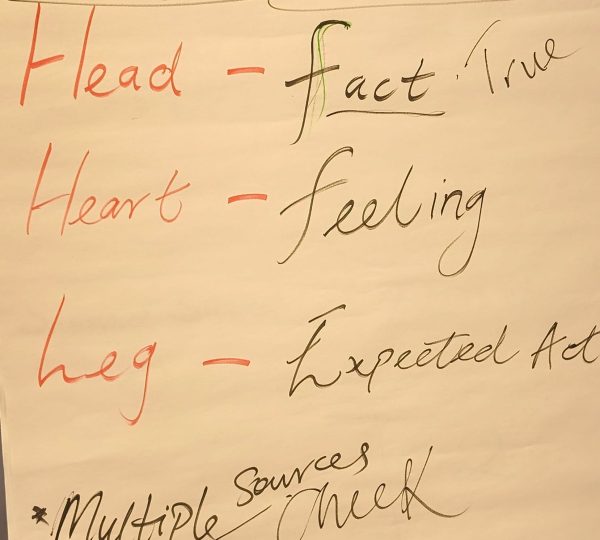 Head - fact. True
Heart - feeling
Leg - Expected Act
* Multiple Sources Check